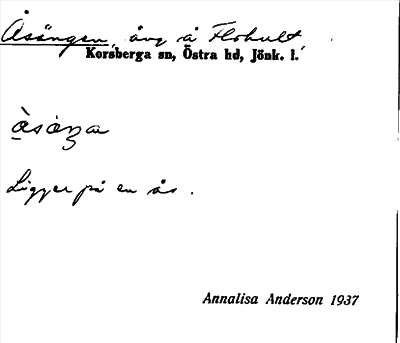 Åsängen, äng å Flohult.
Korsberga sn, Östra hd, Jönk. l.
Ligger på en ås.
Annalisa Anderson 1937